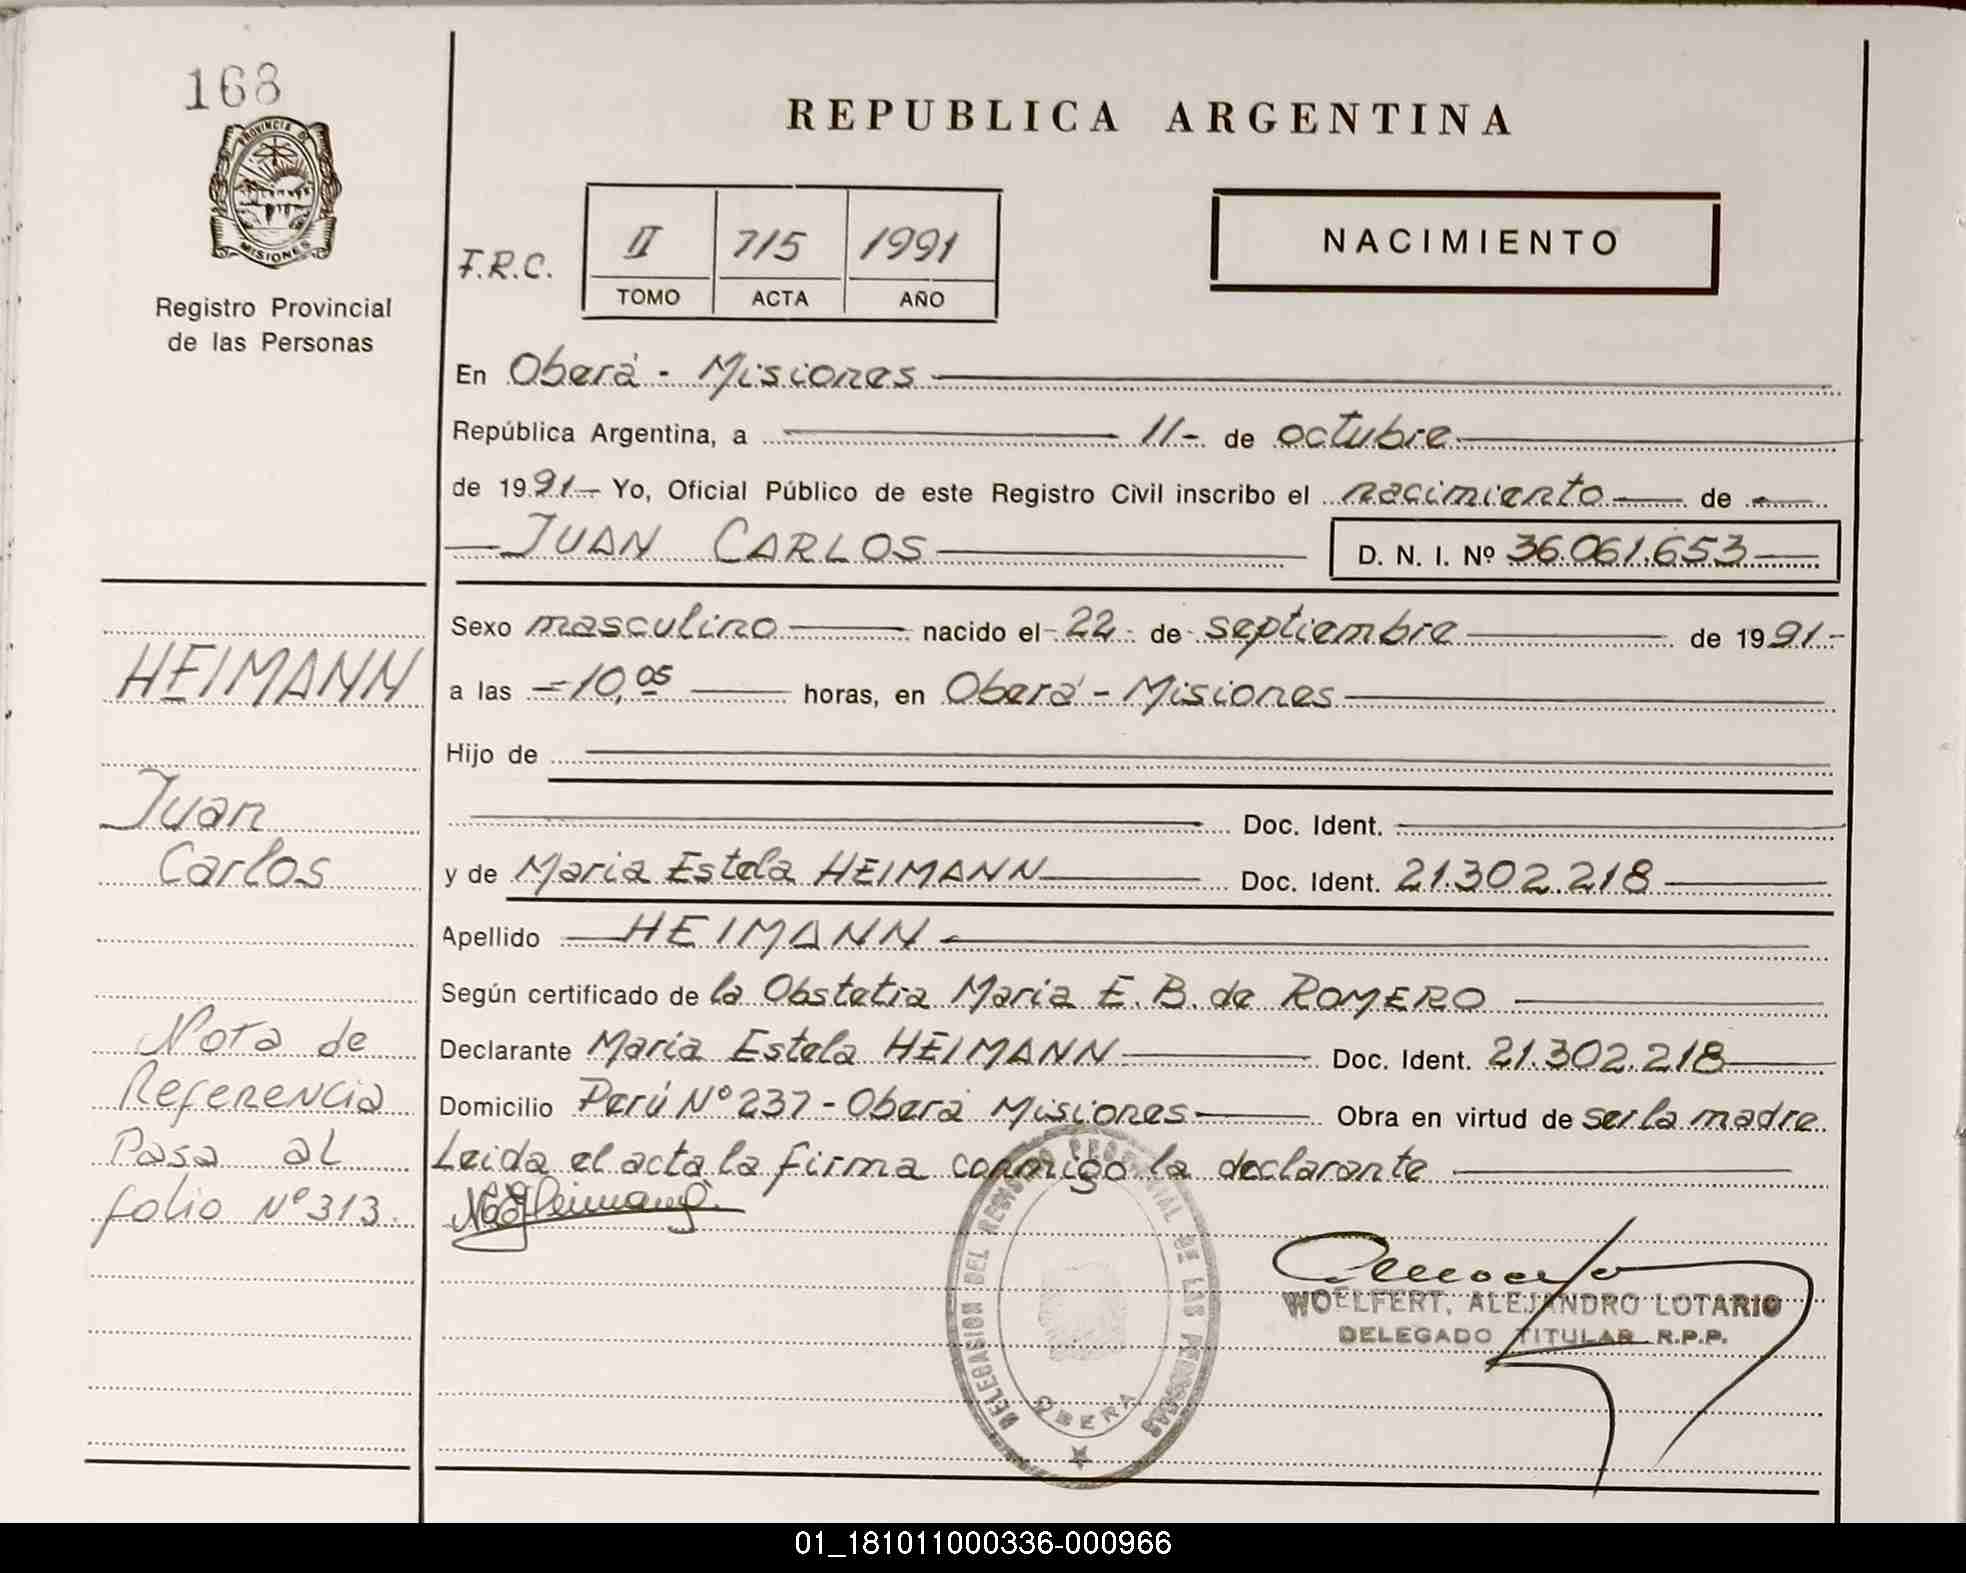 168
PROVINCIA DE
MISIONES
Registro Provincial
de las Personas
REPUBLICA ARGENTINA
F.R.C.
II 715 1991
TOMO ACTA AÑO
NACIMIENTO
En Oberá - Misiones
República Argentina, a 11- de octubre
de 1991- Yo, Oficial Público de este Registro Civil inscribo el nacimiento de
JUAN CARLOS D. N. I. Nº 36.061.653
Sexo masculino nacido el 22 de septiembre de 1991.-
a las 10,05 horas, en Oberá - Misiones
Hijo de
Doc. Ident.
y de Maria Estela HEIMANN Doc. Ident. 21.302.218
Apellido HEIMANN
Según certificado de la Obstetra Maria E. B. de ROMERO
Declarante Maria Estela HEIMANN Doc. Ident. 21.302.218
Domicilio Perú Nº 237 - Oberá Misiones Obra en virtud de ser la madre
Leida el acta la firma conmigo la declarante
HEIMANN
Juan
Carlos
Nota de
Referencia
Pasa al
folio Nº 313.
DELEGASION DEL REGISTRO PROVINCIAL DE LAS PERSONAS
OBERA
WOELFERT, ALEJANDRO LOTARIO
DELEGADO TITULAR R.P.P.
01_181011000336-000966